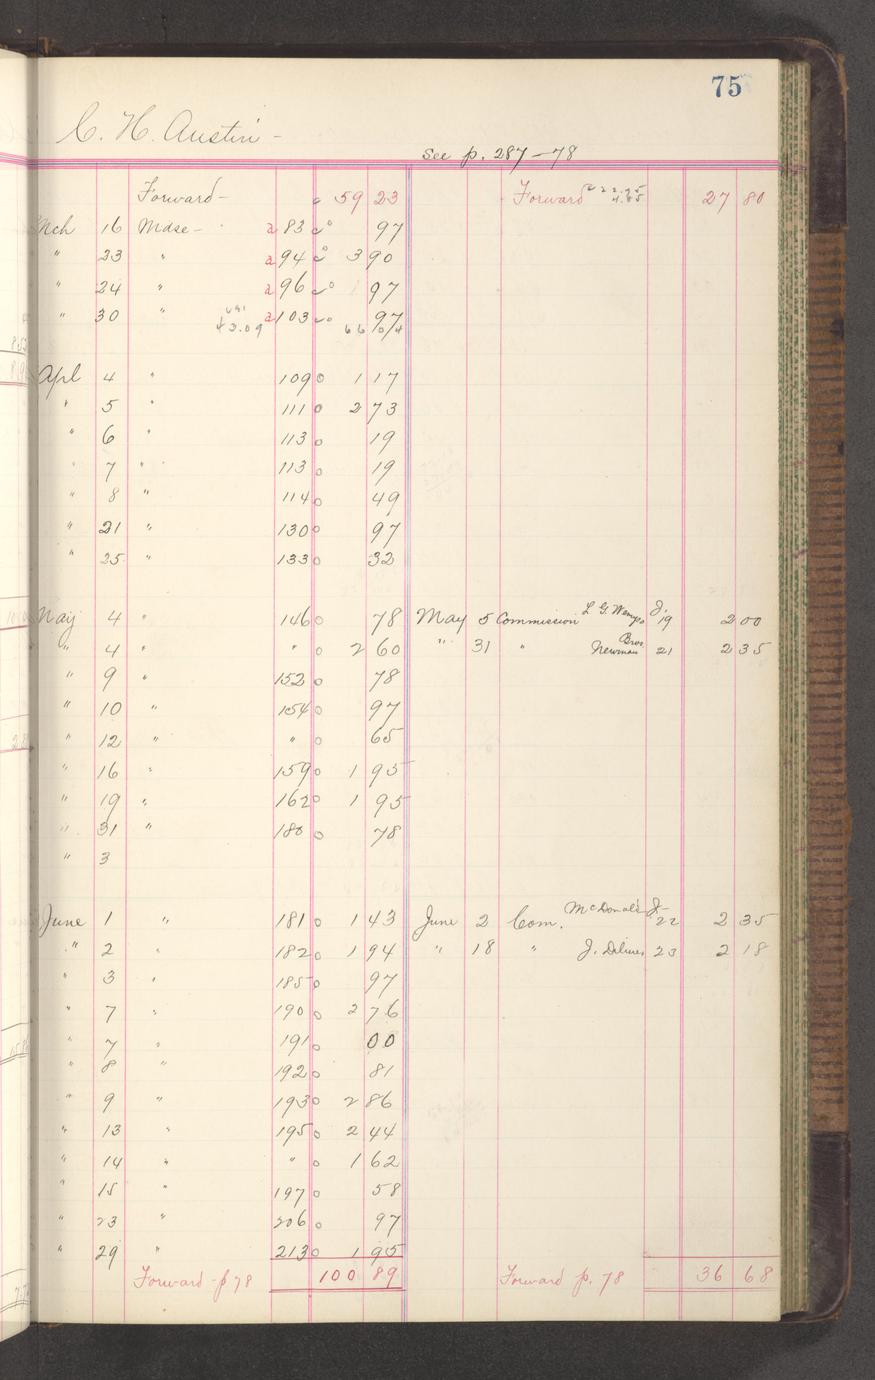 75
C. H. Austin -
See p. 287-78
Forward - 59 23 Forward 22.95 27 80
4.85
Mch 16 Mdse - a 83 97
" 23 " a 94 3 90
" 24 " a 96 97
" 30 " a 103 97
43.09 66 04
Apl 4 " 109 0 1 17
" 5 " 111 0 2 73
" 6 " 113 0 19
" 7 " 113 0 19
" 8 " 114 0 49
" 21 " 130 0 97
" 25 " 133 0 32
May 4 " 146 0 78 May 5 Commission L. G. J. 19 2 00
" 4 " " 0 2 60 " 31 " Newman Bros 21 2 35
" 9 " 152 0 78
" 10 " 154 0 97
" 12 " " 0 65
" 16 " 159 0 1 95
" 19 " 162 0 1 95
" 31 " 180 0 78
" 3
June 1 " 181 0 1 43 June 2 Com. McDonald J- 22 2 35
" 2 " 182 0 1 94 " 18 " J. 23 2 18
" 3 " 185 0 97
" 7 " 190 0 2 76
" 7 " 191 0 00
" 8 " 192 0 81
" 9 " 193 0 2 86
" 13 " 195 0 2 44
" 14 " " 0 1 62
" 15 " 197 0 58
" 23 " 206 0 97
" 29 " 213 0 1 95
Forward - p 78 100 89 Forward p. 78 36 68